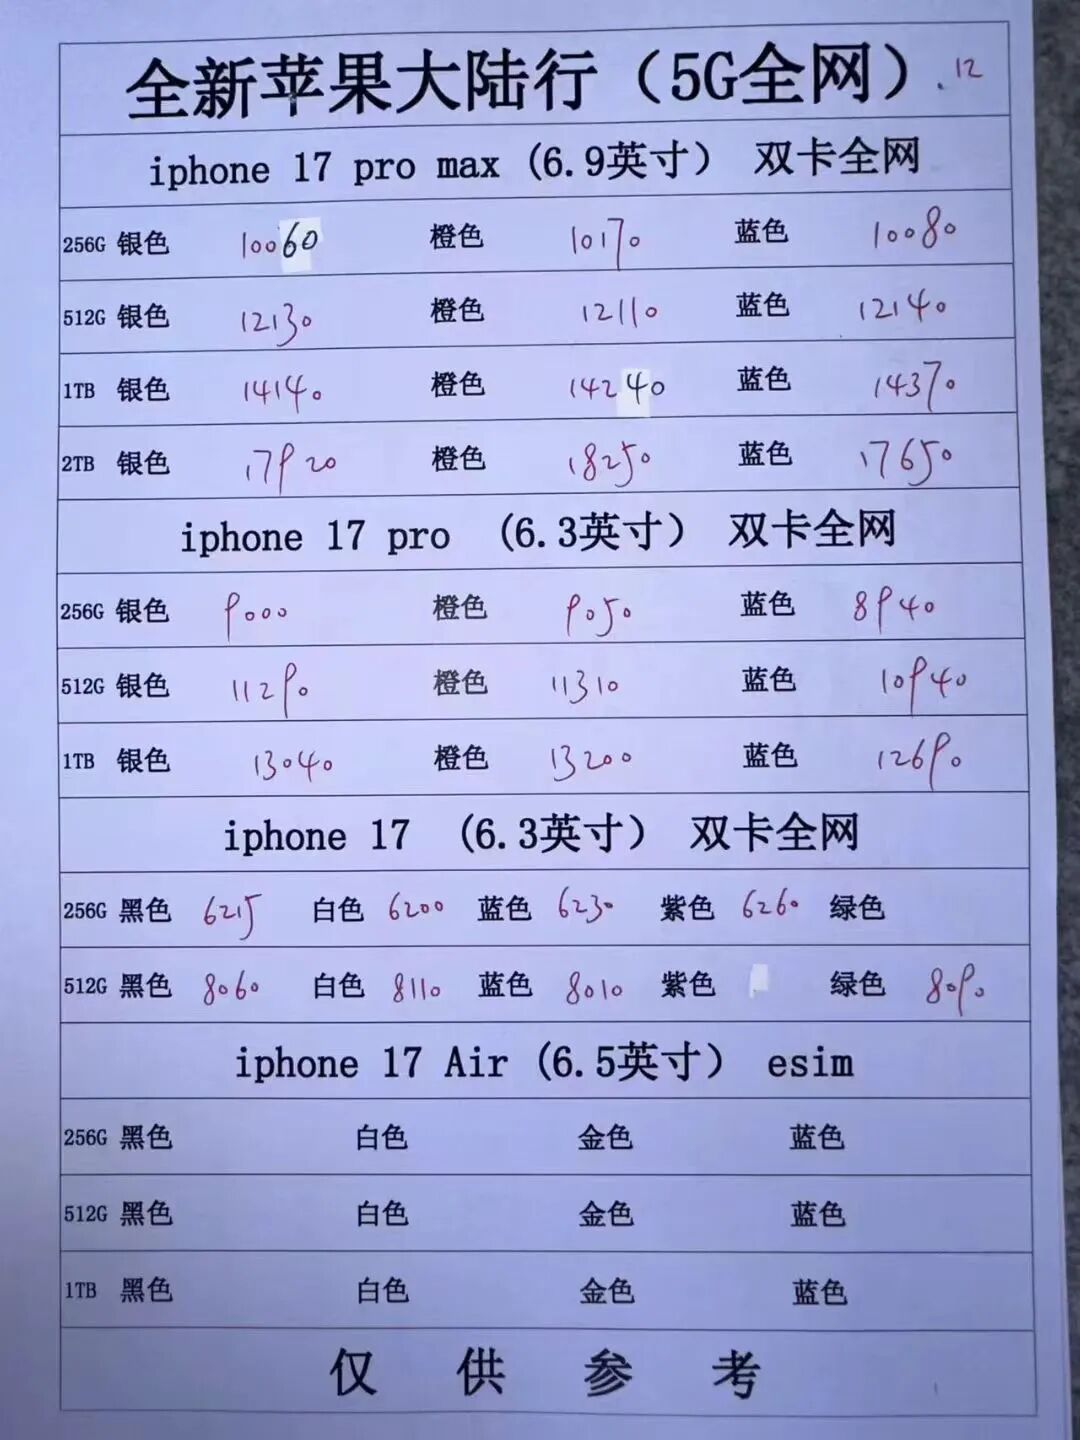 全新苹果大陆行（5G全网）.12
iphone 17 pro max (6.9英寸） 双卡全网
256G 银色 10060 橙色 10170 蓝色 10080
512G 银色 12130 橙色 12110 蓝色 12140
1TB 银色 14140 橙色 14240 蓝色 14370
2TB 银色 17920 橙色 18250 蓝色 17650
iphone 17 pro (6.3英寸） 双卡全网
256G 银色 9000 橙色 9050 蓝色 8940
512G 银色 11290 橙色 11310 蓝色 10940
1TB 银色 13040 橙色 13200 蓝色 12690
iphone 17 (6.3英寸） 双卡全网
256G 黑色 6215 白色 6200 蓝色 6230 紫色 6260 绿色
512G 黑色 8060 白色 8110 蓝色 8010 紫色 绿色 8090
iphone 17 Air (6.5英寸） esim
256G 黑色 白色 金色 蓝色
512G 黑色 白色 金色 蓝色
1TB 黑色 白色 金色 蓝色
仅 供 参 考